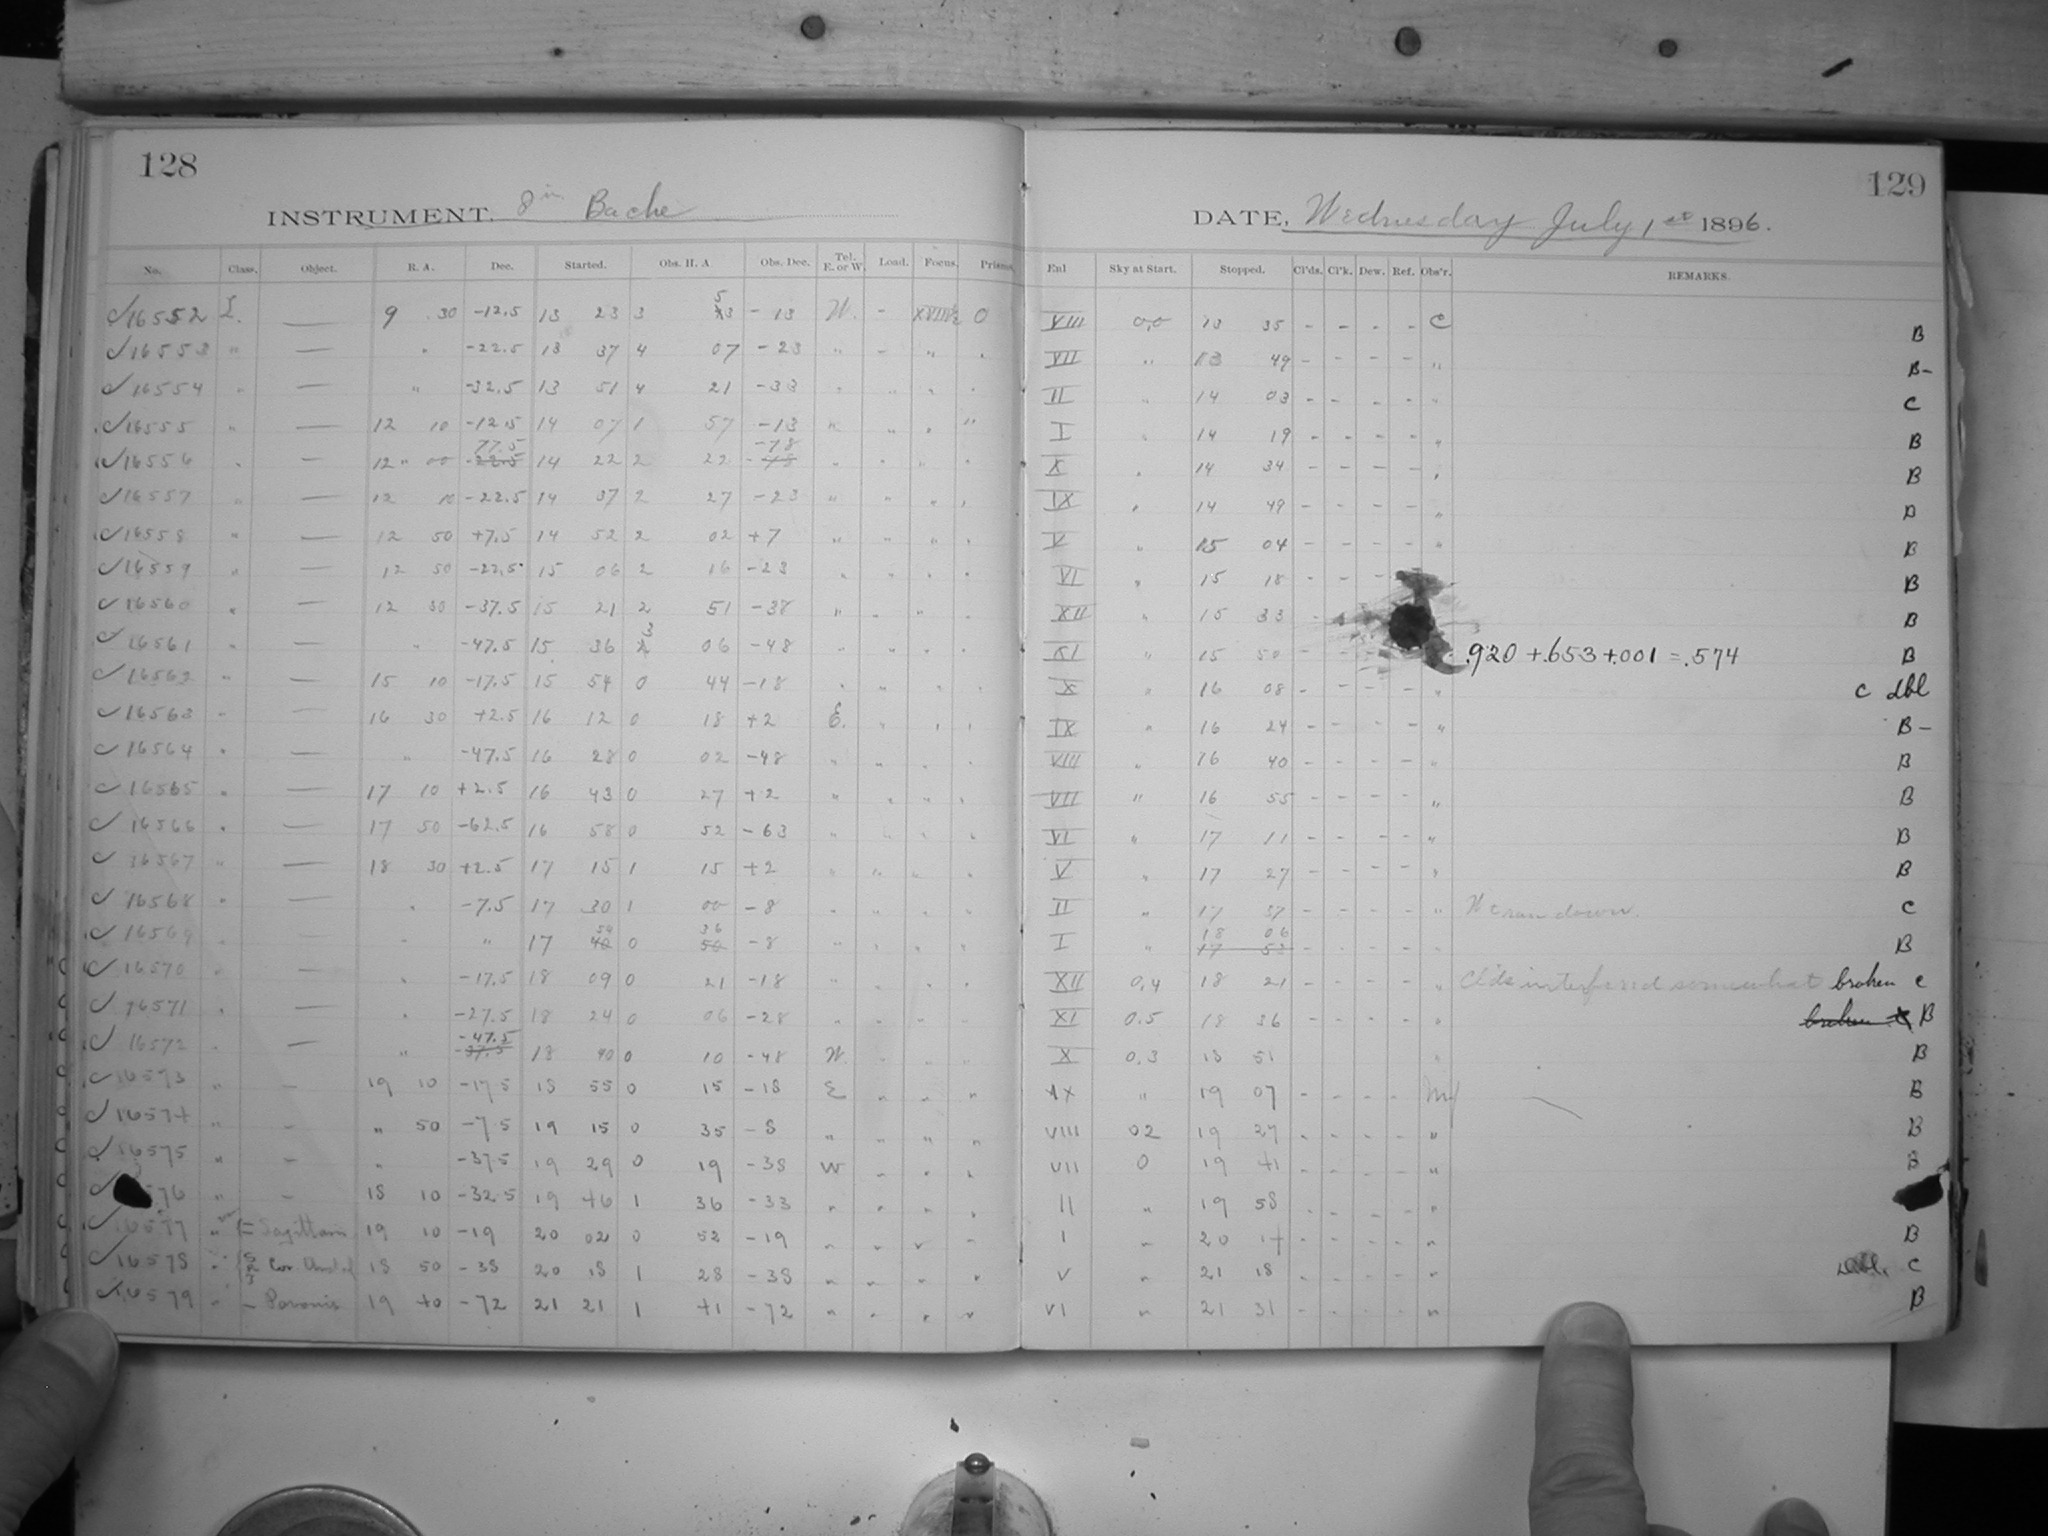 128
INSTRUMENT. 8 in Bache
No. Class. Object. R. A. Dec. Started. Obs. H. A Obs. Dec. Tel. E. or W. Load. Focus. Prisms
16552 L. — 9 30 -12.5 13 23 3 53 -13 W. - XVIII½ 0
16553 " — " -22.5 13 37 4 07 -23 " - " "
16554 " — " -32.5 13 51 4 21 -33 " " " "
16555 " — 12 10 -12.5 14 07 1 57 -13 " " " "
16556 " — 12 00 77.5 -22.5 14 22 2 22 -78 " " " "
16557 " — 12 10 -22.5 14 37 2 27 -23 " " " "
16558 " — 12 50 +7.5 14 52 2 02 +7 " " " "
16559 " — 12 50 -22.5 15 06 2 16 -23 " " " "
16560 " — 12 30 -37.5 15 21 2 51 -38 " " " "
16561 " — " -47.5 15 36 3 2 06 -48 " " " "
16562 " — 15 10 -17.5 15 54 0 44 -18 " " " "
16563 " — 16 30 +2.5 16 12 0 18 +2 E. " " "
16564 " — " -47.5 16 28 0 02 -48 " " " "
16565 " — 17 10 +2.5 16 43 0 27 +2 " " " "
16566 " — 17 50 -62.5 16 58 0 52 -63 " " " "
16567 " — 18 30 +2.5 17 15 1 15 +2 " " " "
16568 " — " -7.5 17 30 1 00 -8 " " " "
16569 " — " " 17 54 40 0 36 50 -8 " " " "
16570 " — " -17.5 18 09 0 21 -18 " " " "
16571 " — " -27.5 18 24 0 06 -28 " " " "
16572 " — " -47.5 -37.5 18 40 0 10 -48 W. " " "
16573 " - 19 10 -17.5 18 55 0 15 -18 E " " "
16574 " - " 50 -7.5 19 15 0 35 -8 " " " "
16575 " - " -37.5 19 29 0 19 -38 W " " "
76 " - 18 10 -32.5 19 46 1 36 -33 " " " "
16577 " Sagittarii 19 10 -19 20 02 0 52 -19 " " " "
16578 " Cor. 18 50 -38 20 18 1 28 -38 " " " "
16579 " - Pavonis 19 40 -72 21 21 1 41 -72 " " " "
129
DATE, Wednesday July 1st 1896.
Enl Sky at Start. Stopped. Cl'ds. Cl'k. Dew. Ref. Obs'r. REMARKS.
VIII 0,0 13 35 - - - - C B
VII " 13 49 - - - - " B-
II " 14 03 - - - - " C
I " 14 19 - - - - " B
X " 14 34 - - - - " B
IX " 14 49 - - - - " B
V " 15 04 - - - - " B
VI " 15 18 - - - B
XII " 15 33 - B
XI " 15 50 - - - .920 +.653 +.001 = .574 B
X " 16 08 - - - - " C dbl
IX " 16 24 - - - - " B-
VIII " 16 40 - - - - " B
VII " 16 55 - - - - " B
VI " 17 11 - - - - " B
V " 17 27 - - - - " B
II " 17 37 - - - - " ran down. C
I " 18 06 17 53 - - - - " B
XII 0,4 18 21 - - - - " Cl'ds interfered somewhat broken C
XI 0.5 18 36 - - - - " broken C B
X 0.3 18 51 " B
IX " 19 07 - - - - M B
VIII 02 19 27 - - - - " B
VII 0 19 41 - - - - " B
II " 19 58 - - - - "
I " 20 14 - - - - " B
V " 21 18 - - - - " dbl. C
VI " 21 31 - - - - " B